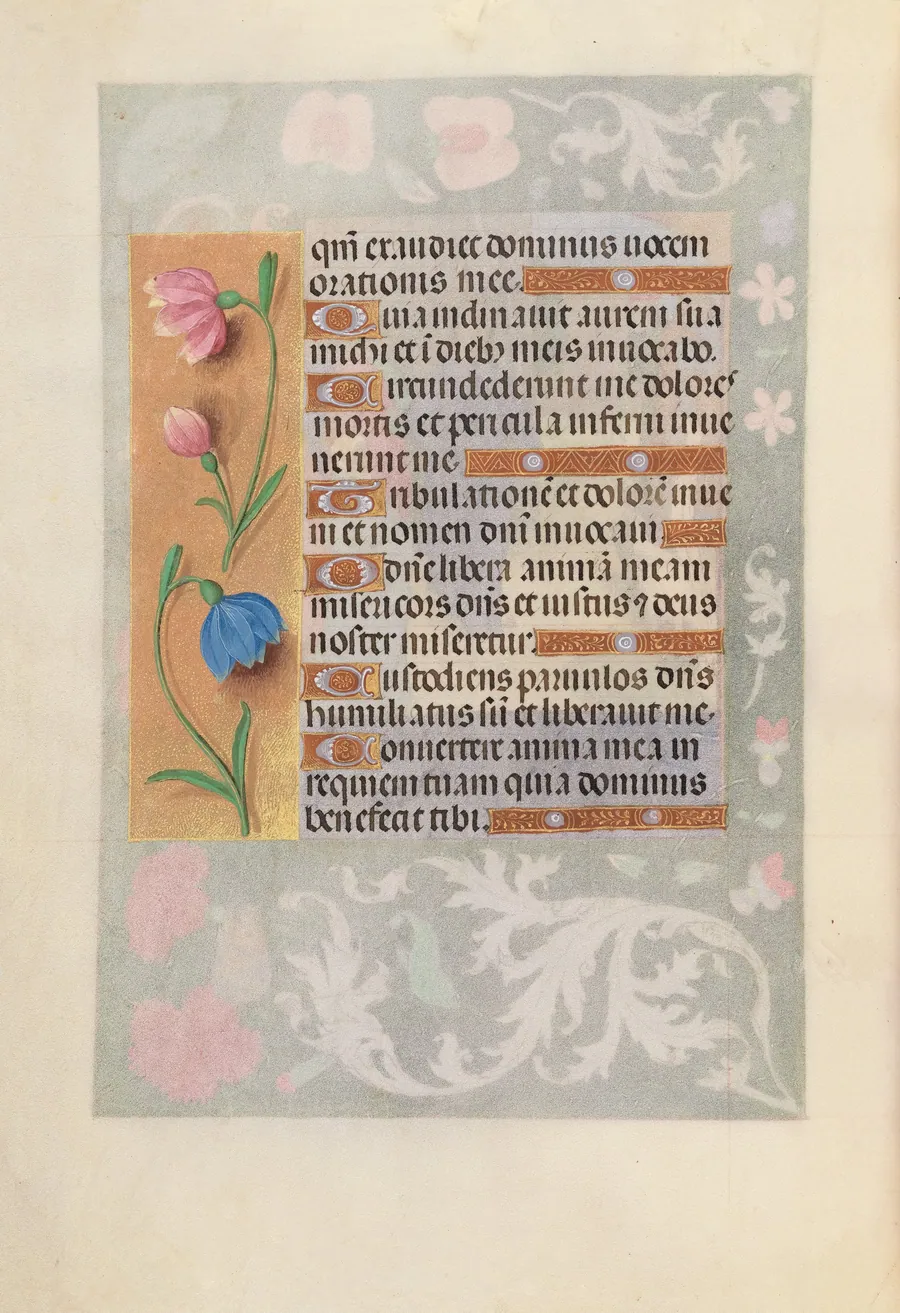 qm̄ exaudiet dominus uocem
orationis mee.
Quia inclinauit aurem sua
michi et ī dieb⁹ meis inuocabo.
Circundederunt me dolores
mortis et pericula inferni inue
nerunt me.
Tribulationē et dolorē inue
ni et nomen dn̄i inuocaui.
O dn̄e libera animā meam
misericors dn̄s et iustus ⁊ deus
noster miseretur.
Custodiens paruulos dn̄s
humiliatus sū et liberauit me.
Conuertere anima mea in
requiem tuam quia dominus
benefecit tibi.